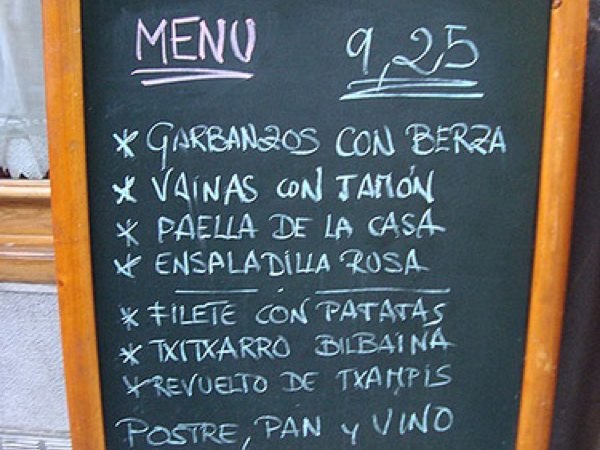 MENU 9,25
* GARBANZOS CON BERZA
* VAINAS CON JAMÓN
* PAELLA DE LA CASA
* ENSALADILLA RUSA
* FILETE CON PATATAS
* TXITXARRO BILBAINA
* REVUELTO DE TXAMPIS
POSTRE, PAN Y VINO